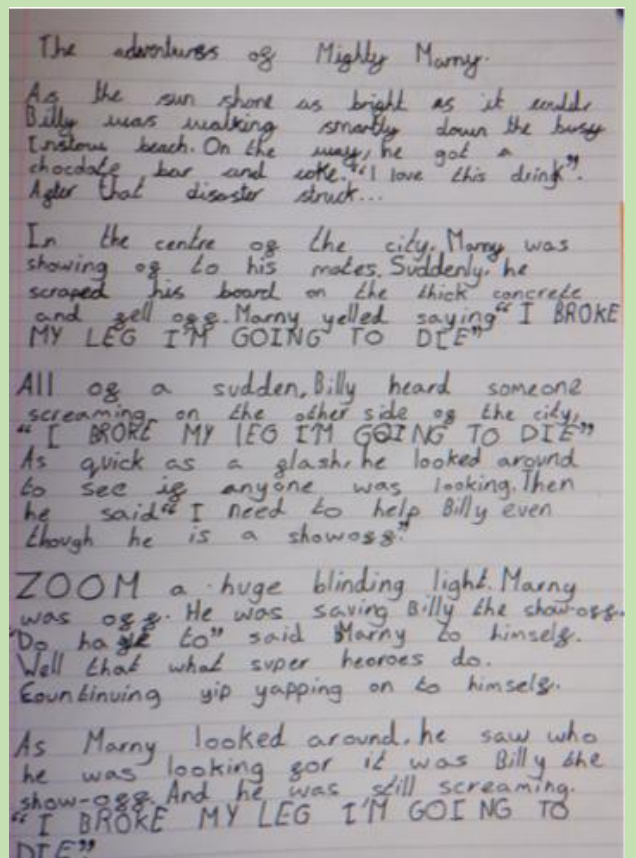 The adventures of Mighty Marny.
As the sun shone as bright as it could,
Billy was walking smartly down the busy
Instow beach. On the way, he got a
chocolate bar and coke. "I love this drink".
After that disaster struck...
In the centre of the city, Marny was
showing of to his mates. Suddenly, he
scraped his board on the thick concrete
and fell off. Marny yelled saying "I BROKE
MY LEG I'M GOING TO DIE"
All of a sudden, Billy heard someone
screaming on the other side of the city,
"I BROKE MY lEG I'M GOING TO DIE"
As quick as a flash, he looked around
to see if anyone was looking. Then
he said "I need to help Billy even
though he is a showoff."
ZOOM a huge blinding light. Marny
was off. He was saving Billy the show-off.
"Do have to" said Marny to himself.
Well that what super heoroes do.
Countinuing yip yapping on to himself.
As Marny looked around, he saw who
he was looking for it was Billy the
show-off. And he was still screaming.
"I BROKE MY LEG I'M GOING TO
DIE"